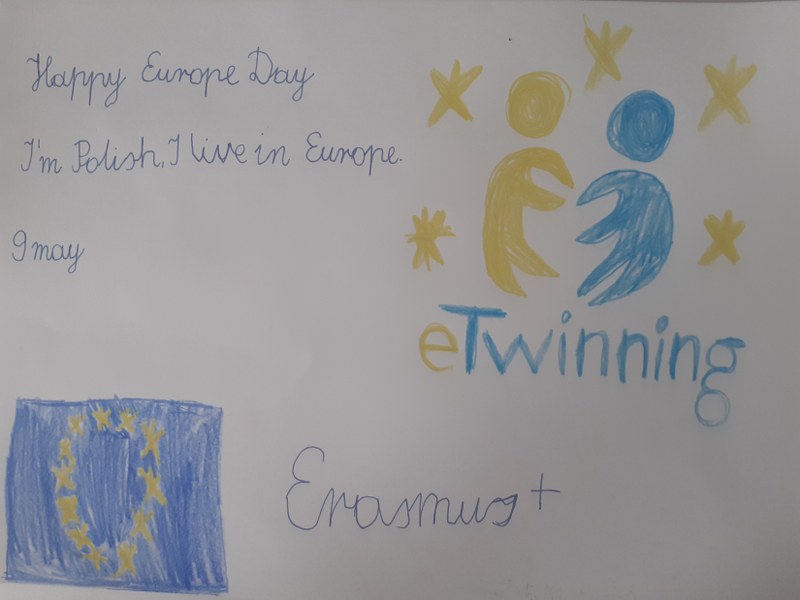 Happy Europe Day
I'm Polish, I live in Europe.
9 may
eTwinning
Erasmus +